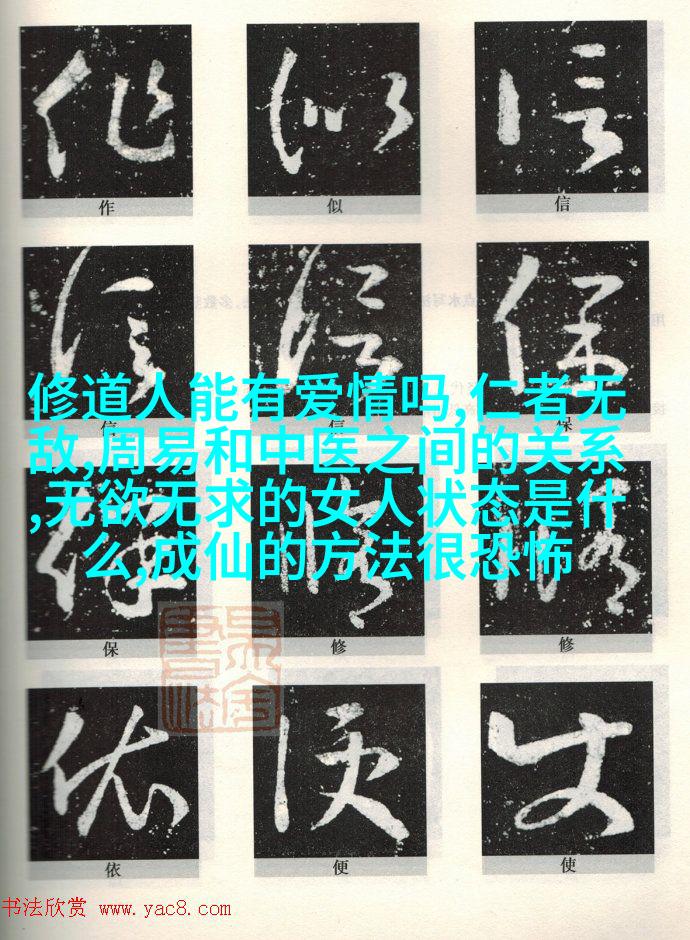 作 似 信
信 信 保
修道人能有爱情吗,仁者无
敌,周易和中医之间的关系
,无欲无求的女人状态是什
么,成仙的方法很恐怖
保 修 修
依 便 使
书法欣赏 www.yac8.com